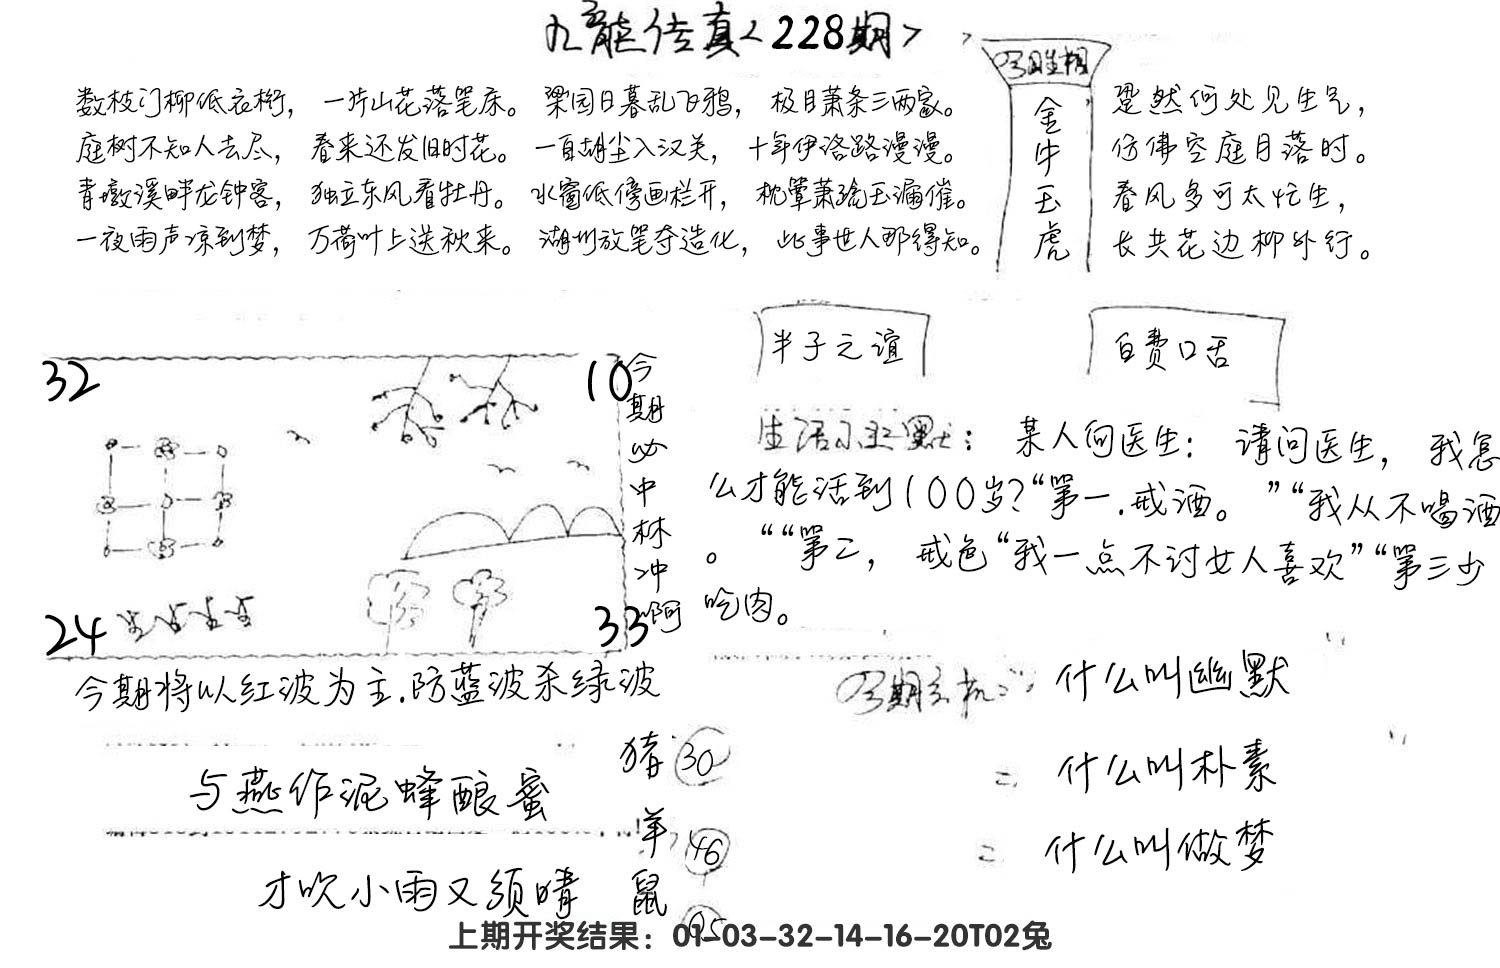 九龙传真<228期>
今日生相
金牛玉虎
数枝门柳低衣桁，一片山花落笔床。梁园日暮乱飞鸦，极目萧条三两家。
庭树不知人去尽，春来还发旧时花。一自胡尘入汉关，十年伊洛路漫漫。
青墩溪畔龙钟客，独立东风看牡丹。水窗低傍画栏开，枕簟萧疏玉漏催。
一夜雨声凉到梦，万荷叶上送秋来。湖州放笔夺造化，此事世人那得知。
跫然何处见生气，
仿佛空庭月落时。
春风多可太忙生，
长共花边柳外行。
半子之谊
白费口舌
32
10
24
33
今期必中林冲啊
生活小幽默：某人问医生：请问医生，我怎
么才能活到100岁？“第一.戒酒。”“我从不喝酒
。““第二，戒色“我一点不讨女人喜欢”“第三少
吃肉。
今期将以红波为主.防蓝波杀绿波
今期玄机
什么叫幽默
二 什么叫朴素
二 什么叫做梦
与燕作泥蜂酿蜜
才吹小雨又须晴
猪 30
羊 46
鼠 05
上期开奖结果：01-03-32-14-16-20T02兔